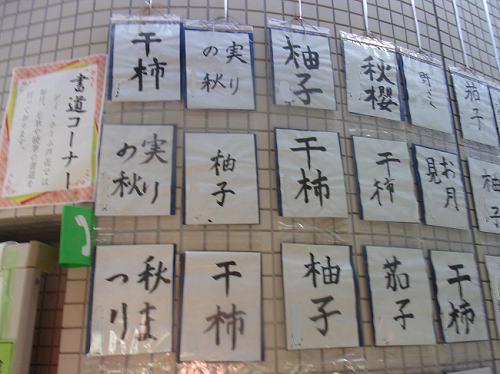 書道コーナー
干柿
実り
の秋
柚子
秋櫻
野ぎく
茄子
実り
の秋
柚子
干柿
干柿
お月
見
柚子
秋ま
つり
干柿
柚子
茄子
干柿